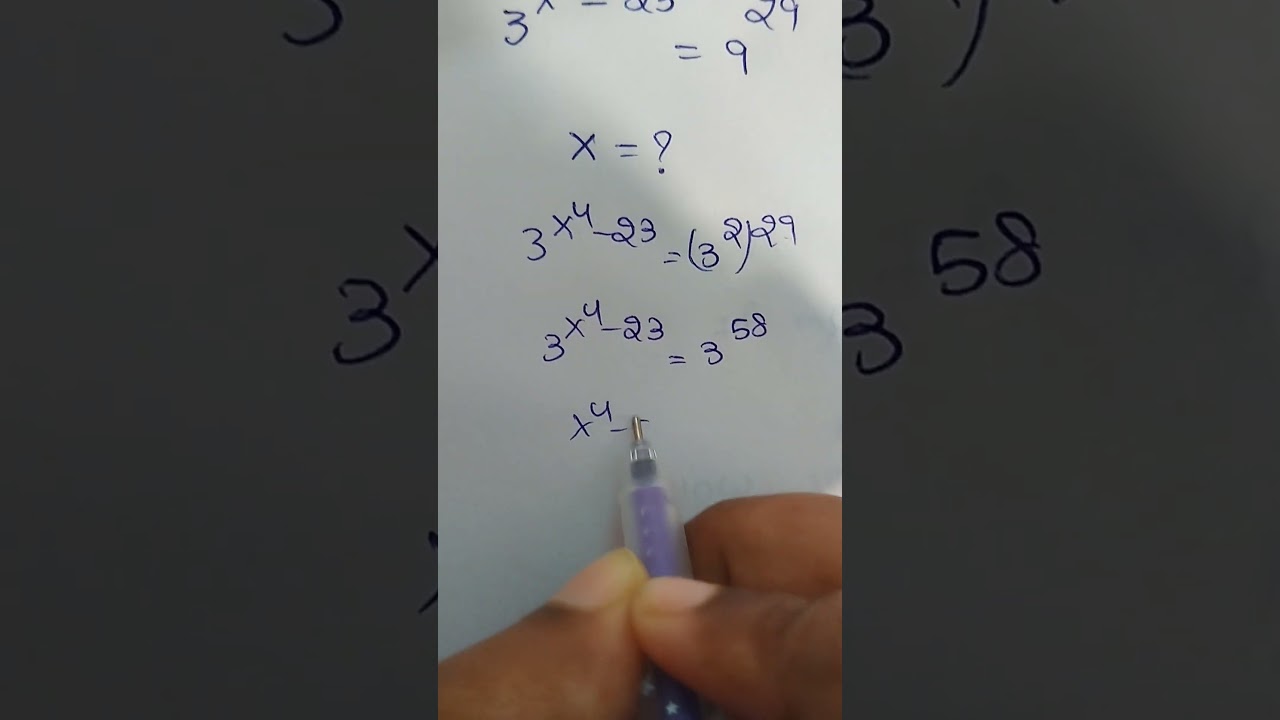 3^x - 23
= 9^29
x = ?
3^x^4-23 = (3^2)^29
3^x^4-23 = 3^58
x^4 -